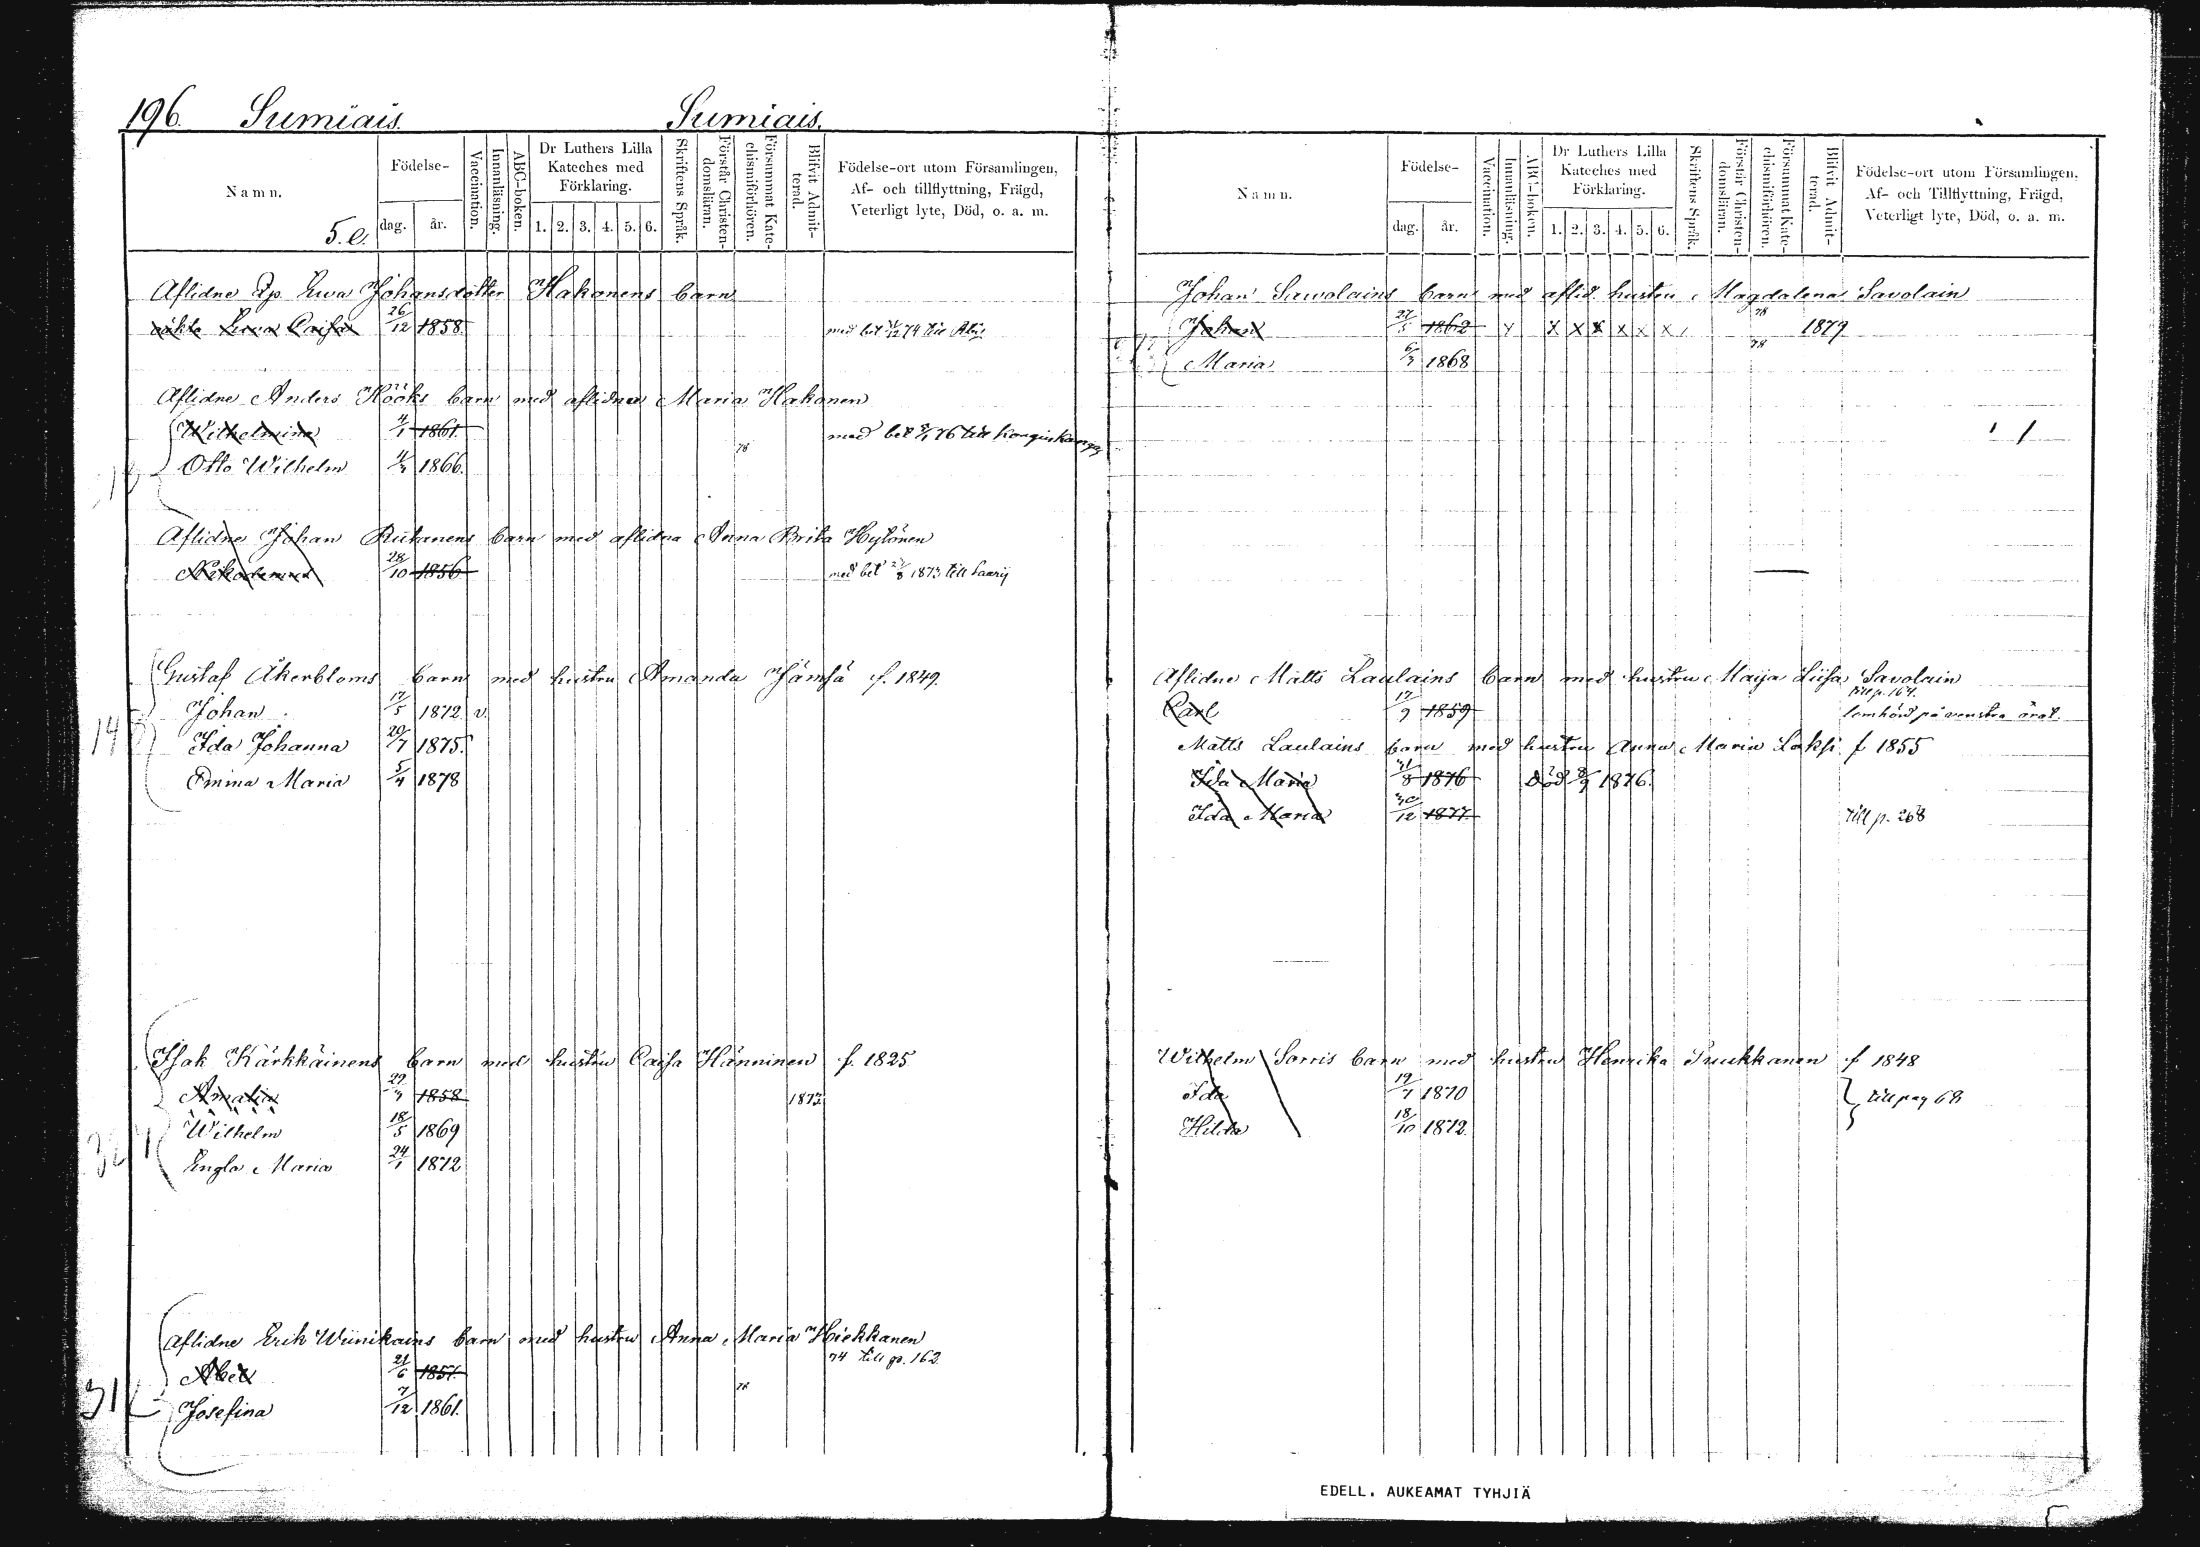 196. Sumiais. Sumiais.
Namn. Födelse- dag. år. Vaccination. Innanläsning. ABC-boken. Dr Luthers Lilla Kateches med Förklaring. 1. 2. 3. 4. 5. 6. Skriftens Språk. Förstår Christendomsläran. Försummat Katechismiförhören. Blifvit Admitterad. Födelse-ort utom Församlingen, Af- och tillflyttning, Frägd, Veterligt lyte, Död, o. a. m.
5. C.
Aflidne Ewa Johansdotter Hakonens barn
oäkta Ewa Caisa 26/12 1858 med bet 74 till
Aflidne Anders Hööks barn med aflidna Maria Hakonen
Wilhelmina 4/1 1861. med bet 76 till Konginkangas
78
Otto Wilhelm 1866.
Aflidne Johan Rutanens barn med aflidna Anna Brita Hytönen
Nikodemus 28/10 1856 med bet 8 1873 till Saarij
Gustaf Åkerbloms barn med hustru Amanda Jämsä f. 1849.
Johan 17/5 1872 v.
14
Ida Johanna 20/7 1875.
Emma Maria 5/4 1878
Isak Kärkkäinens barn med hustru Caisa Hänninen f. 1825
Amalia 1858 1873
Wilhelm 18/5 1869
Engla Maria 24/1 1872
Aflidne Erik Wiinikains barn med hustru Anna Maria Hiekkanen
74 till p. 162.
Abel 21/6 1857.
78
31
Josefina 7/12 1861.
Namn. Födelse- dag. år. Vaccination. Innanläsning. ABC-boken. Dr Luthers Lilla Kateches med Förklaring. 1. 2. 3. 4. 5. 6. Skriftens Språk. Förstår Christendomsläran. Försummat Katechismiförhören. Blifvit Admitterad. Födelse-ort utom Församlingen, Af- och Tillflyttning, Frägd, Veterligt lyte, Död, o. a. m.
Johan Sawolains barn med aflid. hustru Magdalena Savolain
78
Johan 27/5 1862 x x x x x x x 1879
78
Maria 1868
Aflidne Matts Laulains barn med hustru Maija Liisa Savolain
till p. 164.
Carl 17/9 1859 lomhörd på venstra örat.
Matts Laulains barn med hustru Anna Maria Laksi f 1855
Ida Maria 31/8 1876 Död 8/9 1876.
Ida Maria 30/12 1877. till p. 268
Wilhelm Sorris barn med hustru Henrika Puukkanen f 1848
Ida 19/7 1870 till pag 68
Hilda 18/10 1872.
EDELL. AUKEAMAT TYHJIÄ